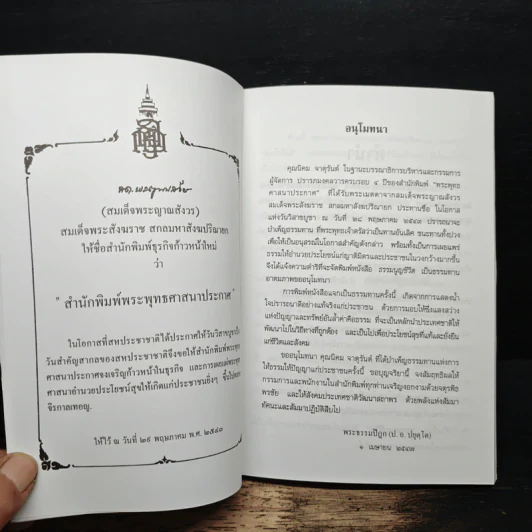 (สมเด็จพระญาณสังวร)
สมเด็จพระสังฆราช สกลมหาสังฆปริณายก
ให้ชื่อสำนักพิมพ์ธุรกิจก้าวหน้าใหม่
ว่า
" สำนักพิมพ์พระพุทธศาสนาประกาศ "
ในโอกาสที่สหประชาชาติได้ประกาศให้วันวิสาขบูชาเป็น
วันสำคัญสากลของสหประชาชาติจึงขอให้สำนักพิมพ์พระพุทธ
ศาสนาประกาศจงเจริญก้าวหน้าในธุรกิจ และการเผยแผ่พระพุทธ
ศาสนาอำนวยประโยชน์สุขให้เกิดแก่ประชาชนยิ่งๆ ขึ้นไปตลอด
จิรกาลเทอญ.
ให้ไว้ ณ วันที่ ๒๙ พฤษภาคม พ.ศ. ๒๕๔๓
อนุโมทนา
คุณนิคม จาตุรันต์ ในฐานะบรรณาธิการบริหารและกรรมการ
ผู้จัดการ ปรารภมงคลวารครบรอบ ๔ ปีของสำนักพิมพ์ "พระพุทธ
ศาสนาประกาศ" ที่ได้รับพระเมตตาจากเจ้าพระคุณสมเด็จพระญาณสังวร
สมเด็จพระสังฆราช สกลมหาสังฆปริณายก ประทานชื่อ ในโอกาส
แห่งวันวิสาขบูชา ณ วันที่ ๒๙ พฤษภาคม ๒๕๔๓ ปรารถนาจะ
บำเพ็ญธรรมทาน ที่พระพุทธเจ้าตรัสว่าเป็นทานอันเลิศ ชนะทานทั้งปวง
เพื่อให้เป็นอนุสรณ์ในโอกาสสำคัญดังกล่าว พร้อมทั้งเป็นการเผยแพร่
ธรรมให้อำนวยประโยชน์แก่ญาติมิตรและประชาชนในวงกว้างมากขึ้น
จึงได้แจ้งความดำริที่จะจัดพิมพ์หนังสือ ธรรมนูญชีวิต เป็นธรรมทาน
อาตมภาพขออนุโมทนา
การพิมพ์หนังสือแจกเป็นธรรมทานครั้งนี้ เกิดจากการแสดงน้ำ
ใจปรารถนาดีอย่างแท้จริงแก่ประชาชน ด้วยการมอบให้ซึ่งแสงสว่าง
แห่งปัญญาและทรัพย์อันล้ำค่าคือธรรม ที่จะเป็นหลักนำประเทศชาติให้
พัฒนาไปในวิถีทางที่ถูกต้อง และเป็นไปเพื่อประโยชน์สุขที่แท้และยั่งยืน
แก่ชีวิตและสังคม
ขออนุโมทนา คุณนิคม จาตุรันต์ ที่ได้บำเพ็ญธรรมทานแห่งการ
ให้ธรรมให้ปัญญาแก่ประชาชนครั้งนี้ ขอบุญจริยานี้ จงสัมฤทธิผลให้
กรรมการและพนักงานในสำนักพิมพ์ทุกท่านเจริญงอกงามด้วยจตุรพิธ
พรชัย และให้สังคมประเทศชาติวัฒนาสถาพร ด้วยพลังแห่งสัมมา
ทัศนะและสัมมาปฏิบัติสืบไป
พระธรรมปิฎก (ป. อ. ปยุตฺโต)
๑ เมษายน ๒๕๔๗